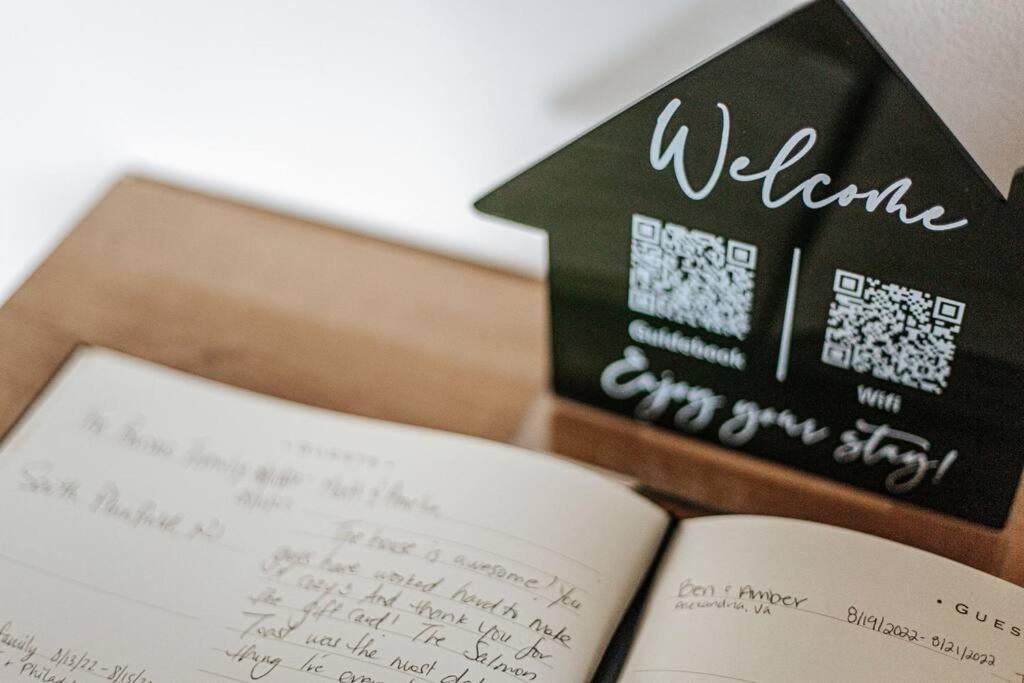 Welcome
Guidebook
Wifi
Enjoy your stay!
GUESTS
South Plainfield, NJ
The house is awesome! You
guys have worked hard to make
it cozy! And thank you for
the gift card! The Salmon
Toast was the most
thing I've
family 8/13/22 - 8/15/22
Ben & Amber
Alexandria, VA
8/19/2022 - 8/21/2022
• GUES